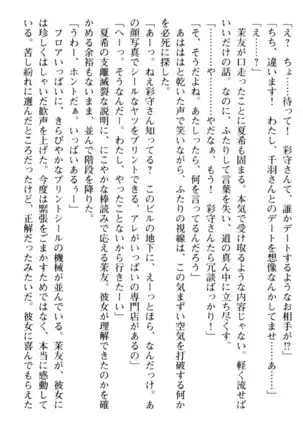 「え？　ちょ……待って！　彩守さんて、誰かデートするようなお相手が!?」
「ちち、違います！　わたし、千羽さんとのデートを想像なんかしてませ……あ……」
「え……？」
　茉友が口走ったことに夏希も固まる。本気で受け取るような内容じゃない。軽く流せば
いいだけの話。なのに、ふたりして言葉を失い、道の真ん中に立ち尽くす。
「……や……やだなぁ、もう！　彩守さんたら冗談ばっかり！」
「そ、そうだよね。あたしったら、何を言ってるんだろう」
　あはははと乾いた声で笑いながら、ふたりの視線は、この気まずい空気を打破する何か
を必死に探した。
「あーっ。ねえ彩守さん知ってる？　このビルの地下に、えーっとほら、なんだっけ。あ
の顔写真でシールなヤツをプリントできる、アレがいっぱいの専門店があるの」
「へーっ。そうなんだー。わたし、やったことないから行きたーい」
　夏希の支離滅裂な説明に、にこやかな棒読みで応える茉友。彼女が理解できたのかを確
かめる余裕もないまま、並んで階段を降りた。
「うわー、ホントだぁ。いっぱいあるぅー」
　フロアいっぱいに、きらびやかなプリントシールの機械が並んでいる。茉友が、彼女に
は珍しくはしゃいだ歓声を上げた。今度は緊張をごまかすためではなく、本当に感動して
いる。苦し紛れに選んだところだったけど、正解だったみたいだ。彼女に喜んでもらえた